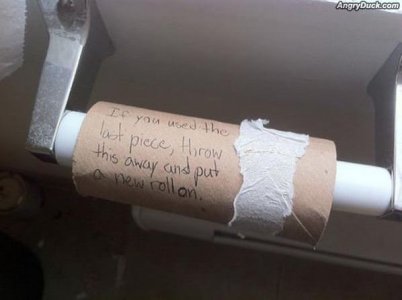 AngryDuck.com
If you used the
last piece, throw
this away and put
a new roll on.